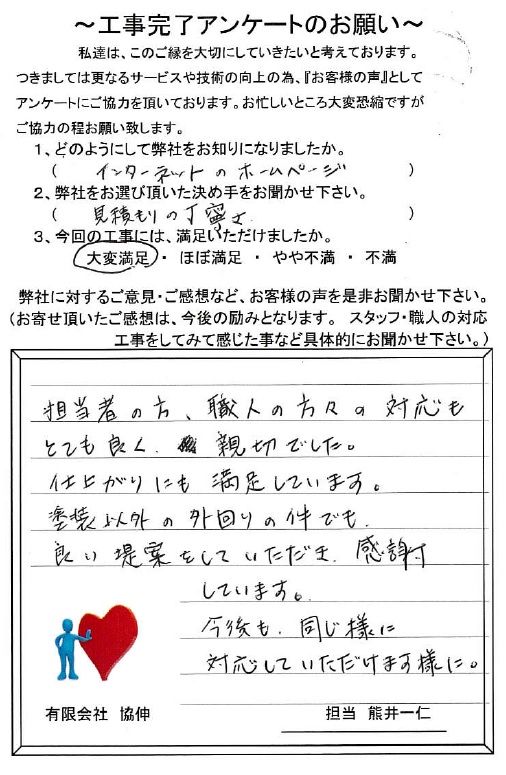 ～工事完了アンケートのお願い～
私達は、このご縁を大切にしていきたいと考えております。
つきましては更なるサービスや技術の向上の為、『お客様の声』として
アンケートにご協力を頂いております。お忙しいところ大変恐縮ですが
ご協力の程お願い致します。
1、どのようにして弊社をお知りになりましたか。
（ インターネットのホームページ ）
2、弊社をお選び頂いた決め手をお聞かせ下さい。
（ 見積もりの丁寧さ ）
3、今回の工事には、満足いただけましたか。
大変満足 ・ ほぼ満足 ・ やや不満 ・ 不満
弊社に対するご意見・ご感想など、お客様の声を是非お聞かせ下さい。
（お寄せ頂いたご感想は、今後の励みとなります。 スタッフ・職人の対応
工事をしてみて感じた事など具体的にお聞かせ下さい。）
担当者の方、職人の方々の対応も
とても良く、親切でした。
仕上がりにも満足しています。
塗装以外の外回りの件でも、
良い提案をしていただき、感謝
しています。
今後も、同じ様に
対応していただけます様に。
有限会社 協伸
担当 熊井一仁